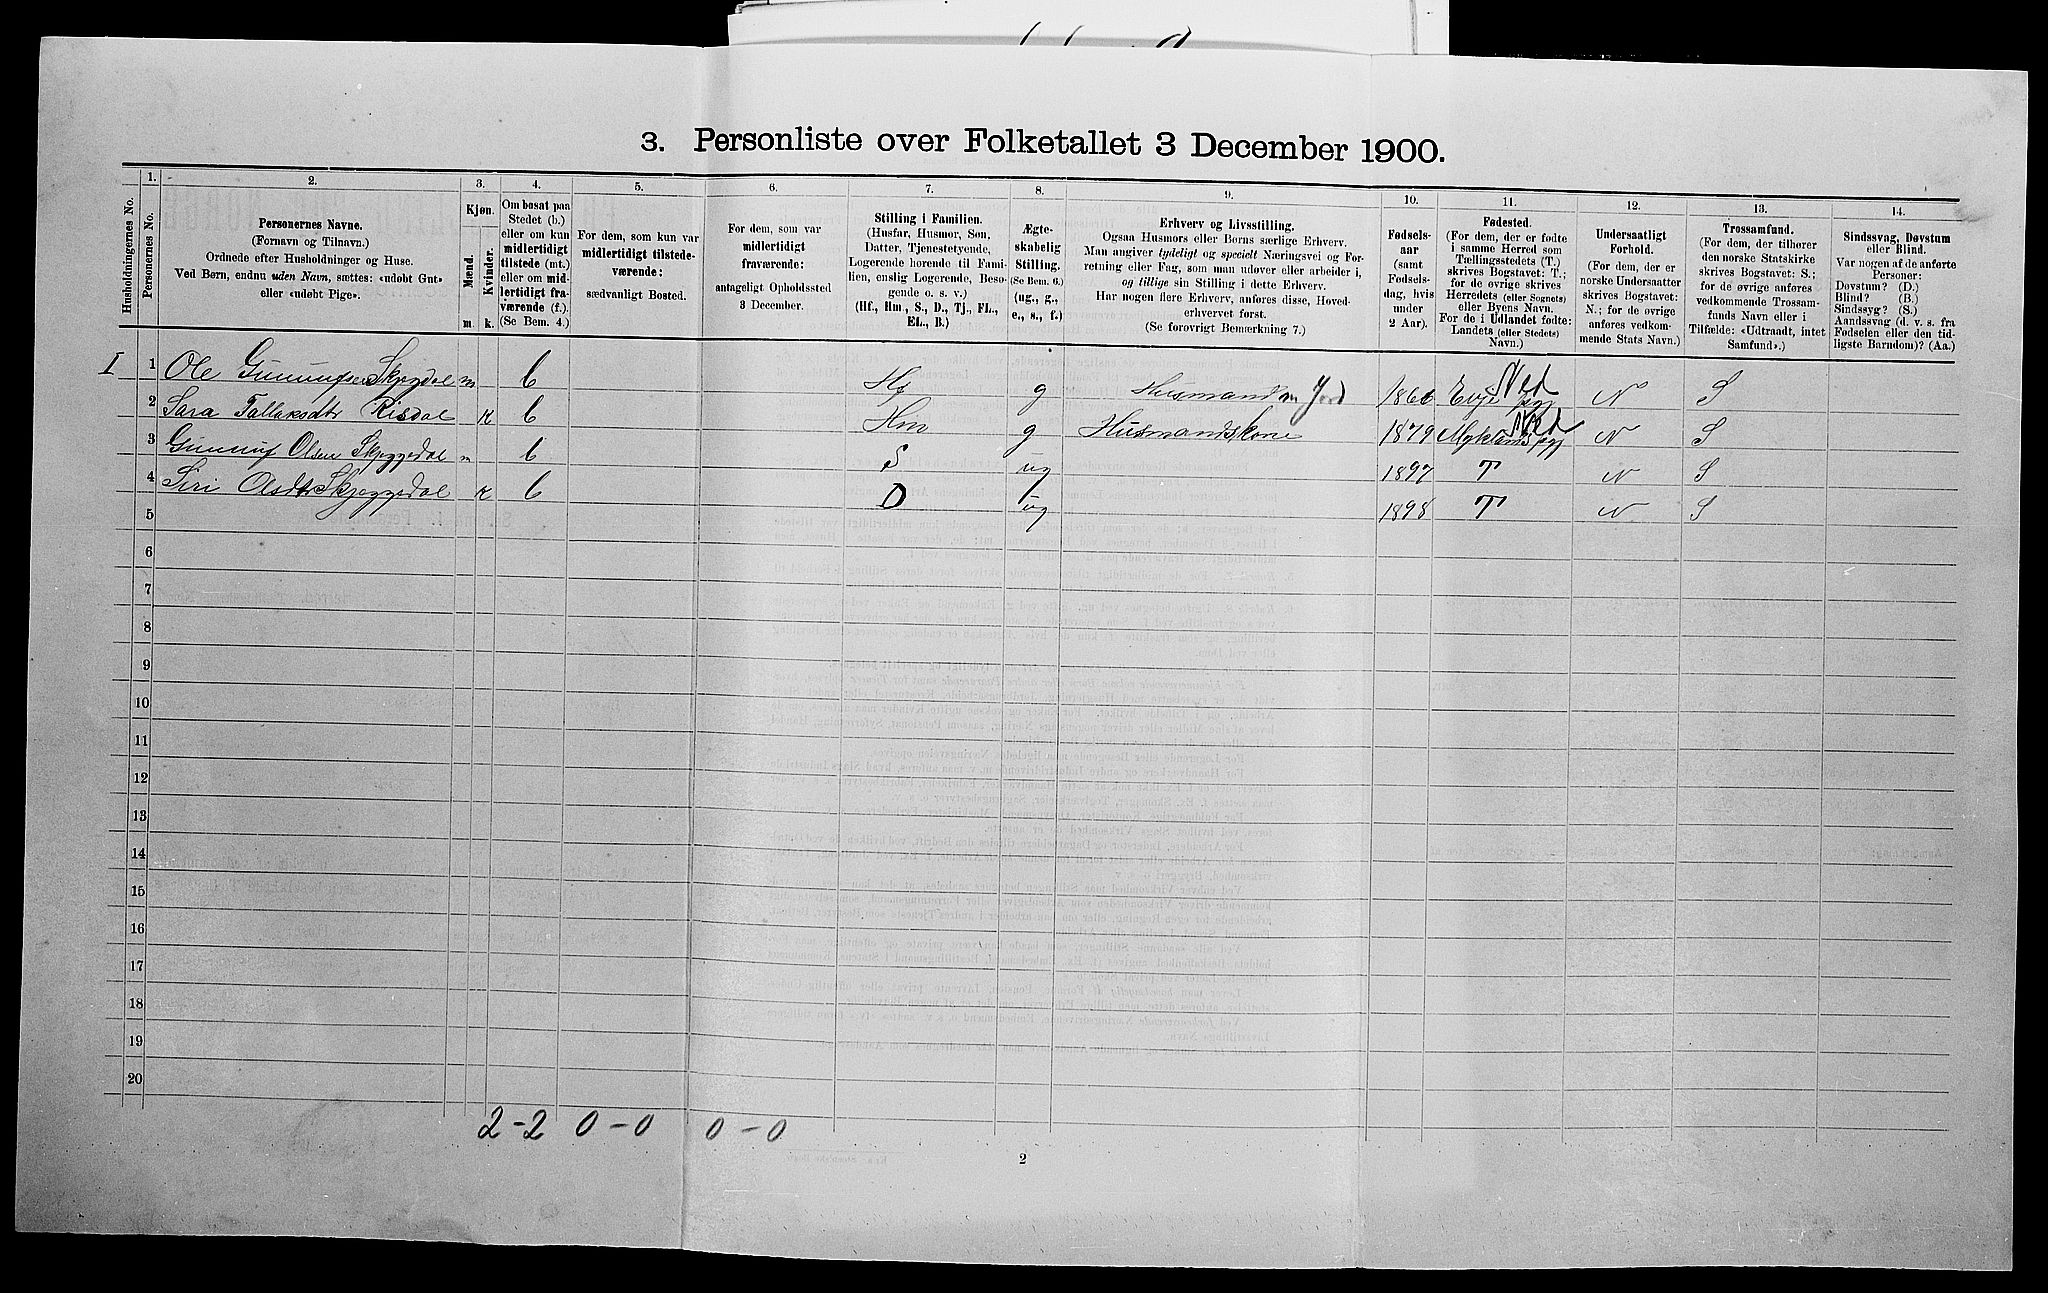 3. Personliste over Folketallet 3 December 1900.
Husholdningernes No.
1.
Personernes No.
2.
Personernes Navne.
(Fornavn og Tilnavn.)
Ordnede efter Husholdninger og Huse.
Ved Børn, endnu uden Navn, sættes: «udøbt Gut»
eller «udøbt Pige».
3.
Kjøn.
Mænd.
Kvinder.
m.
k.
4.
Om bosat paa
Stedet (b.)
eller om kun
midlertidigt
tilstede (mt.)
eller om mid-
lertidigt fra-
værende (f.)
(Se Bem. 4.)
5.
For dem, som kun var
midlertidigt tilstede-
værende:
sædvanligt Bosted.
6.
For dem, som var
midlertidigt
fraværende:
antageligt Opholdssted
3 December.
7.
Stilling i Familien.
(Husfar, Husmor, Søn,
Datter, Tjenestetyende,
Logerende hørende til Fami-
lien, enslig Logerende, Besø-
gende o. s. v.)
(Hf., Hm., S., D., Tj., FL.,
EL., B.)
8.
Ægte-
skabelig
Stilling.
(Se Bem. 6.)
(ug., g.,
e., s., f.)
9.
Erhverv og Livsstilling.
Ogsaa Husmors eller Børns særlige Erhverv.
Man angiver tydeligt og specielt Næringsvei og For-
retning eller Fag, som man udøver eller arbeider i,
og tillige sin Stilling i dette Erhverv.
Har nogen flere Erhverv, anføres disse, Hoved-
erhvervet først.
(Se forøvrigt Bemærkning 7.)
10.
Fødsels-
aar
(samt
Fødsels-
dag, hvis
under
2 Aar).
11.
Fødested.
(For dem, der er fødte
i samme Herred som
Tællingsstedets (T.)
skrives Bogstavet: T.;
for de øvrige skrives
Herredets (eller Sognets)
eller Byens Navn.
For de i Udlandet fødte:
Landets (eller Stedets)
Navn.)
12.
Undersaatligt
Forhold.
(For dem, der er
norske Undersaatter
skrives Bogstavet:
N.; for de øvrige
anføres vedkom-
mende Stats Navn.)
13.
Trossamfund.
(For dem, der tilhører
den norske Statskirke
skrives Bogstavet: S.;
for de øvrige anføres
vedkommende Trossam-
funds Navn eller i
Tilfælde: «Udtraadt, intet
Samfund».)
14.
Sindssvag, Døvstum
eller Blind.
Var nogen af de anførte
Personer:
Døvstum? (D.)
Blind? (B.)
Sindssyg? (S.)
Aandssvag (d. v. s. fra
Fødselen eller den tid-
ligste Barndom)? (Aa.)
I 1 Ole Gunuufsen Skjegdal m b Hf g Husmand m Jord 1866 Evje Ned N S
2 Sara Tallaksdtr Risdal k b Hm g Husmandskone 1879 Myklands Ned N S
3 Gunuuf Olsen Skjeggedal m b S ug 1897 T N S
4 Siri Olsdtr Skjeggedal k b D ug 1898 T N S
5
6
7
8
9
10
11
12
13
14
15
16
17
18
19
20
2 - 2 0 - 0 0 - 0
2